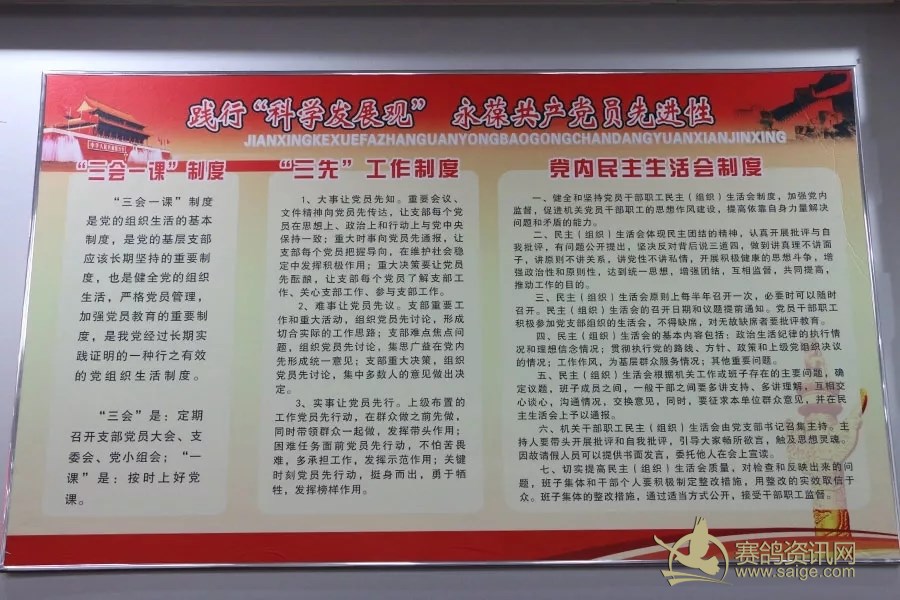 践行“科学发展观” 永葆共产党员先进性
JIANXINGKEXUEFAZHANGUANYONGBAOGONGCHANDANGYUANXIANJINXING
“三会一课”制度
“三会一课”制度
是党的组织生活的基本
制度，是党的基层支部
应该长期坚持的重要制
度，也是健全党的组织
生活，严格党员管理，
加强党员教育的重要制
度，是我党经过长期实
践证明的一种行之有效
的党组织生活制度。
“三会”是：定期
召开支部党员大会、支
委会、党小组会；“一
课”是：按时上好党
课。
“三先”工作制度
1、大事让党员先知。重要会议、
文件精神向党员先传达，让支部每个党
员在思想上、政治上和行动上与党中央
保持一致；重大时事向党员先通报，让
支部每个党员把握导向，在维护社会稳
定中发挥积极作用；重大决策要让党员
先酝酿，让支部每个党员了解支部工
作、关心支部工作、参与支部工作。
2、难事让党员先议。支部重要工
作和重大活动，组织党员先讨论，形成
切合实际的工作思路；支部难点焦点问
题，组织党员先讨论，集思广益在党内
先形成统一意见；支部重大决策，组织
党员先讨论，集中多数人的意见做出决
定。
3、实事让党员先行。上级布置的
工作党员先行动，在群众做之前先做，
同时带领群众一起做，发挥带头作用；
困难任务面前党员先行动，不怕苦畏
难，多承担工作，发挥示范作用；关键
时刻党员先行动，挺身而出，勇于牺
牲，发挥榜样作用。
党内民主生活会制度
一、健全和坚持党员干部职工民主（组织）生活会制度，加强党内
监督，促进机关党员干部职工的思想作风建设，提高依靠自身力量解决
问题和矛盾的能力。
二、民主（组织）生活会体现民主团结的精神，认真开展批评与自
我批评，有问题公开提出，坚决反对背后说三道四，做到讲真理不讲面
子，讲原则不讲关系，讲党性不讲私情，开展积极健康的思想斗争，增
强政治性和原则性，达到统一思想，增强团结，互相监督，共同提高，
推动工作的目的。
三、民主（组织）生活会原则上每半年召开一次，必要时可以随时
召开。民主（组织）生活会的召开日期和议题提前通知。党员干部职工
积极参加党支部组织的生活会，不得缺席，对无故缺席者要批评教育。
四、民主（组织）生活会的基本内容包括：政治生活纪律的执行情
况和理想信念情况；贯彻执行党的路线、方针、政策和上级党组织决议
的情况；工作作风，为基层群众服务情况；其他重要问题。
五、民主（组织）生活会根据机关工作或班子存在的主要问题，确
定议题，班子成员之间，一般干部之间要多讲支持、多讲理解，互相交
心谈心，沟通情况，交换意见，同时，要征求本单位群众意见，并在民
主生活会上予以通报。
六、机关干部职工民主（组织）生活会由党支部书记召集主持。主
持人要带头开展批评和自我批评，引导大家畅所欲言，触及思想灵魂。
因故请假人员可以提供书面发言，委托他人在会上宣读。
七、切实提高民主（组织）生活会质量，对检查和反映出来的问
题，班子集体和干部个人要积极制定整改措施，用整改的实效取信于
众。班子集体的整改措施，通过适当方式公开，接受干部职工监督。
赛鸽资讯网
www.saige.com